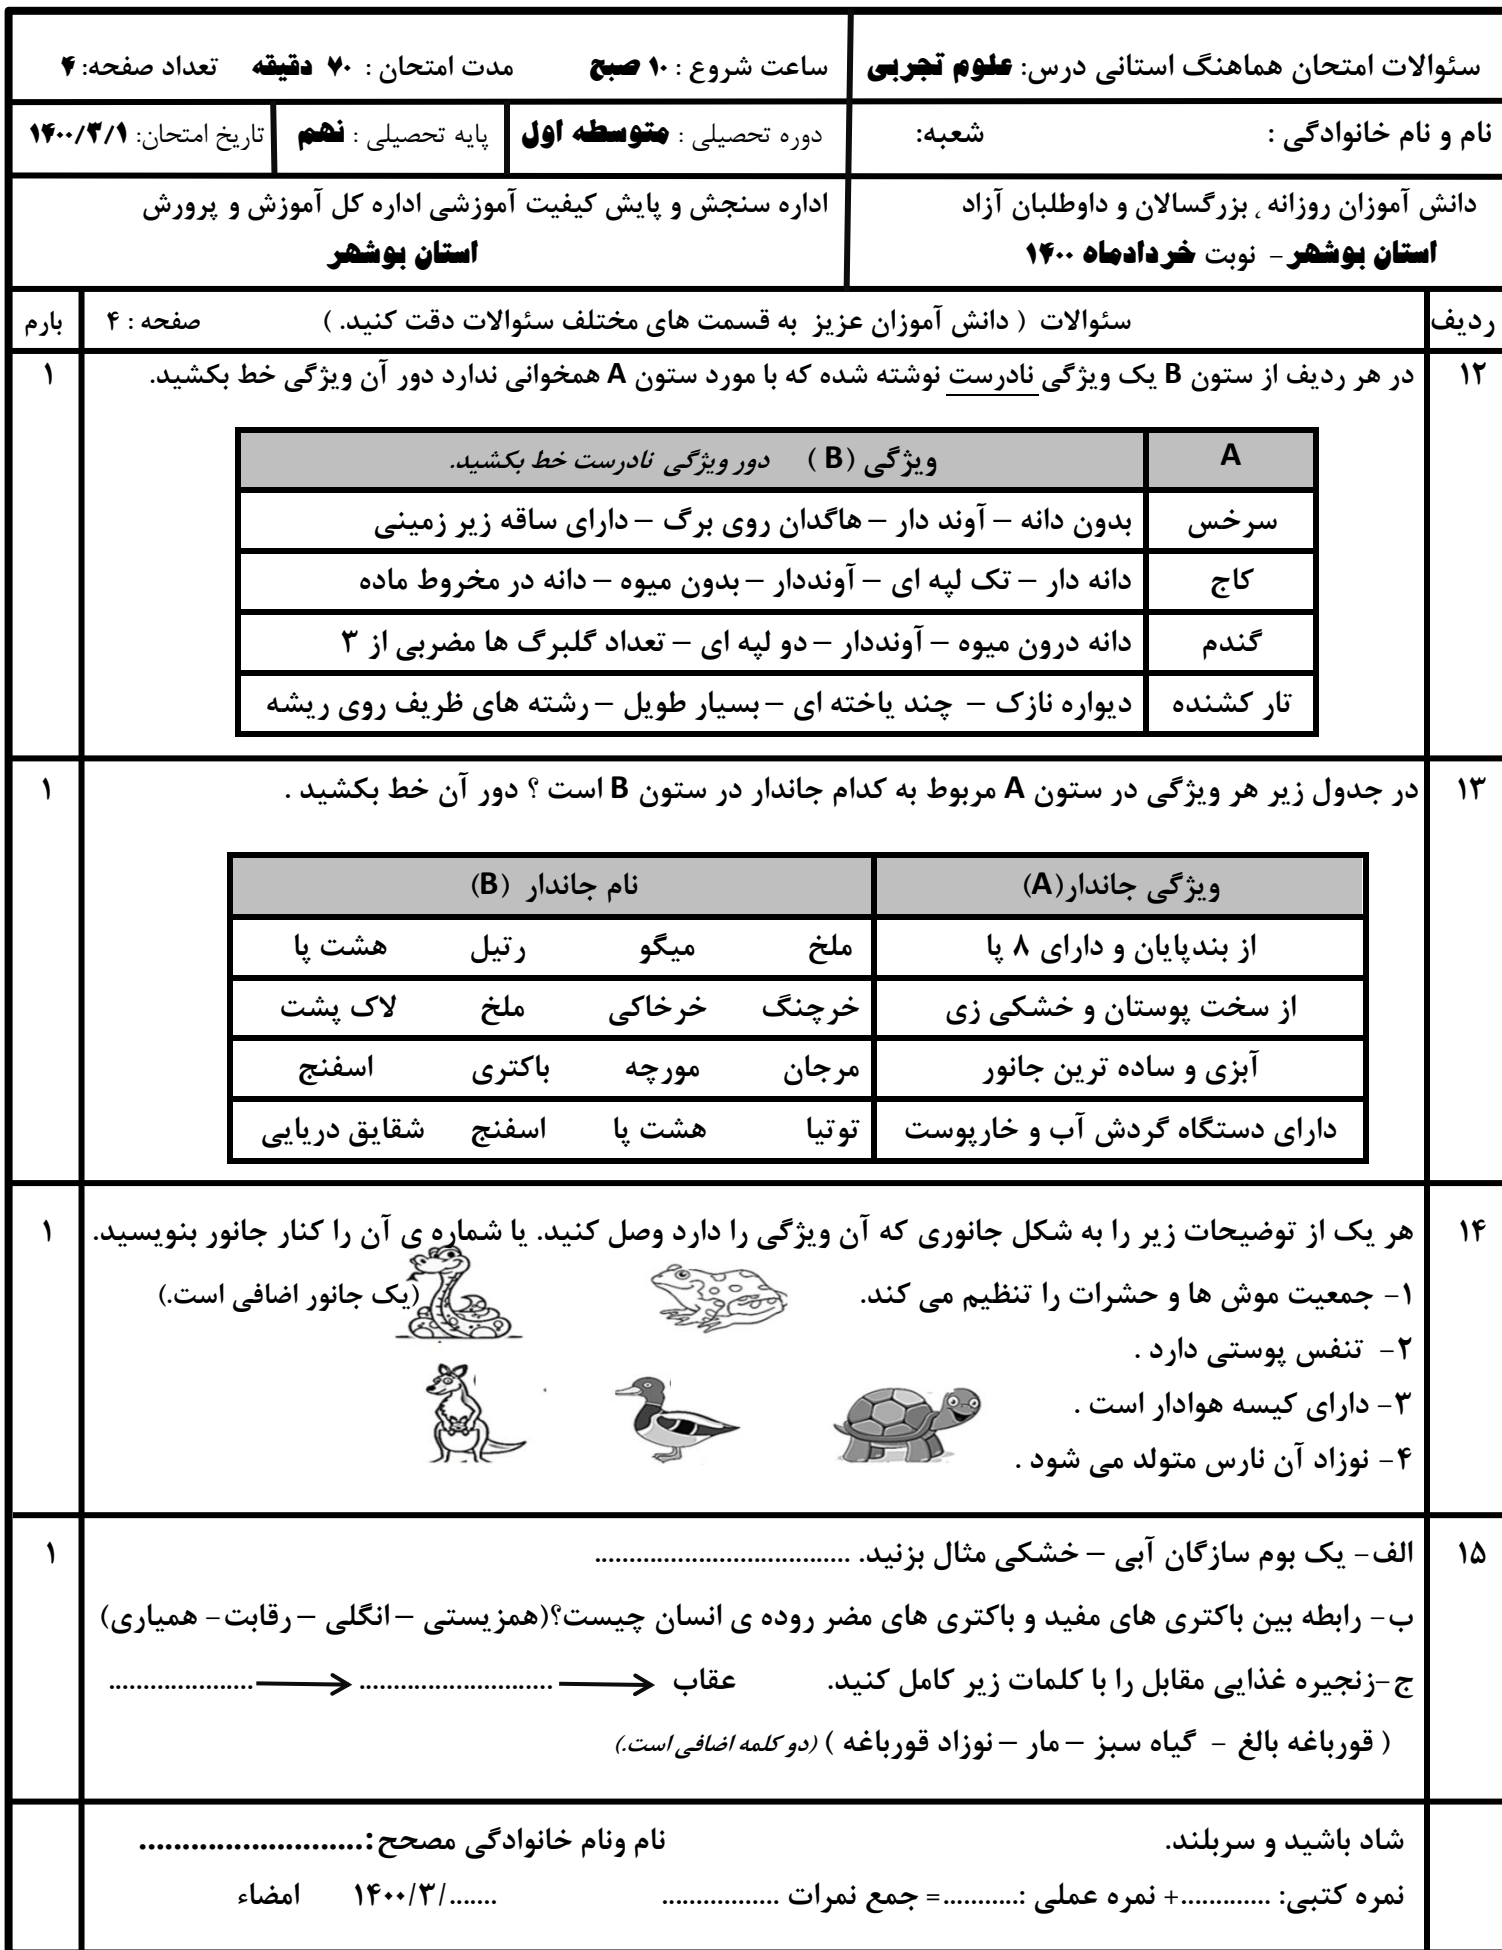 سئوالات امتحان هماهنگ استانی درس: علوم تجربی
ساعت شروع : ۱۰ صبح مدت امتحان : ۷۰ دقیقه تعداد صفحه: ۴
نام و نام خانوادگی : شعبه:
دوره تحصیلی : متوسطه اول پایه تحصیلی : نهم تاریخ امتحان: ۱۴۰۰/۳/۱
دانش آموزان روزانه ، بزرگسالان و داوطلبان آزاد
استان بوشهر - نوبت خردادماه ۱۴۰۰
اداره سنجش و پایش کیفیت آموزشی اداره کل آموزش و پرورش
استان بوشهر
ردیف سئوالات ( دانش آموزان عزیز به قسمت های مختلف سئوالات دقت کنید. ) صفحه : ۴ بارم
۱۲ در هر ردیف از ستون B یک ویژگی نادرست نوشته شده که با مورد ستون A همخوانی ندارد دور آن ویژگی خط بکشید. ۱
A ویژگی (B) دور ویژگی نادرست خط بکشید.
سرخس بدون دانه – آوند دار – هاگدان روی برگ – دارای ساقه زیر زمینی
کاج دانه دار – تک لپه ای – آونددار – بدون میوه – دانه در مخروط ماده
گندم دانه درون میوه – آونددار – دو لپه ای – تعداد گلبرگ ها مضربی از ۳
تار کشنده دیواره نازک – چند یاخته ای – بسیار طویل – رشته های ظریف روی ریشه
۱۳ در جدول زیر هر ویژگی در ستون A مربوط به کدام جاندار در ستون B است ؟ دور آن خط بکشید . ۱
ویژگی جاندار(A) نام جاندار (B)
از بندپایان و دارای ۸ پا ملخ میگو رتیل هشت پا
از سخت پوستان و خشکی زی خرچنگ خرخاکی ملخ لاک پشت
آبزی و ساده ترین جانور مرجان مورچه باکتری اسفنج
دارای دستگاه گردش آب و خارپوست توتیا هشت پا اسفنج شقایق دریایی
۱۴ هر یک از توضیحات زیر را به شکل جانوری که آن ویژگی را دارد وصل کنید. یا شماره ی آن را کنار جانور بنویسید. ۱
۱- جمعیت موش ها و حشرات را تنظیم می کند. (یک جانور اضافی است.)
۲- تنفس پوستی دارد .
۳- دارای کیسه هوادار است .
۴- نوزاد آن نارس متولد می شود .
۱۵ الف- یک بوم سازگان آبی – خشکی مثال بزنید. ..................................... ۱
ب- رابطه بین باکتری های مفید و باکتری های مضر روده ی انسان چیست؟(همزیستی – انگلی – رقابت- همیاری)
ج-زنجیره غذایی مقابل را با کلمات زیر کامل کنید. ..................... → ............................ → عقاب
( قورباغه بالغ - گیاه سبز – مار – نوزاد قورباغه ) (دو کلمه اضافی است.)
شاد باشید و سربلند. نام ونام خانوادگی مصحح:..........................
نمره کتبی: .............+ نمره عملی :...........= جمع نمرات ................. ......./۱۴۰۰/۳ امضاء